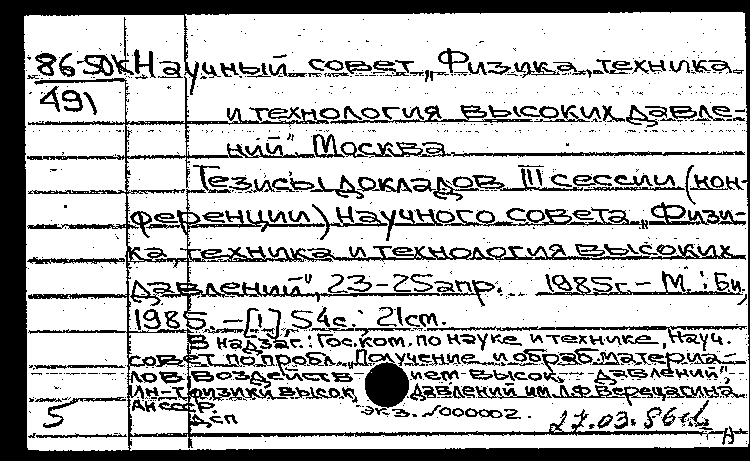 86-50к Научный совет „Физика, техника
491 и технология высоких давле-
ний" Москва.
Тезисы докладов III сессии (кон-
ференции) Научного совета „Физи-
ка, техника и технология высоких
давлений", 23-25 апр. 1985г. - М.: Б.и.,
1985. - [1], 54с.; 21см.
В надзаг.: Гос. ком. по науке и технике, Науч.
совет по пробл. „Получение и обраб. материа-
лов воздейств ием высок. давлений",
Ин-т физики высок. давлений им. Л.Ф. Верещагина
АН СССР.
5 ДСП Экз. №000002. 27.03.86